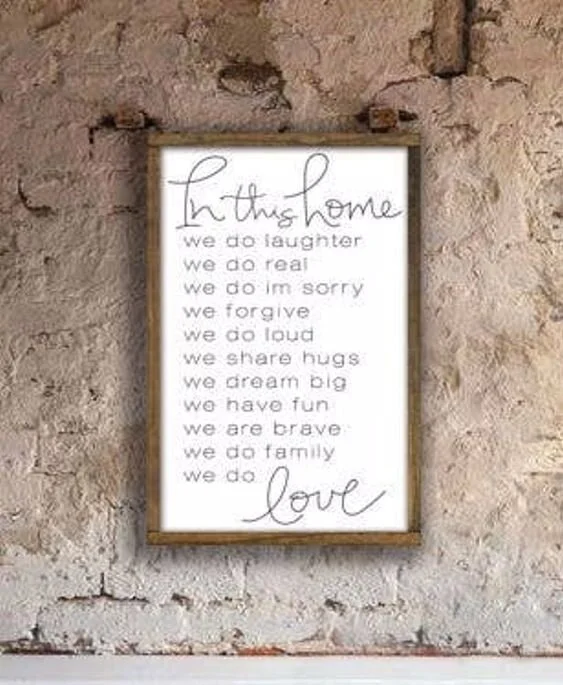 In this home
we do laughter
we do real
we do im sorry
we forgive
we do loud
we share hugs
we dream big
we have fun
we are brave
we do family
we do love